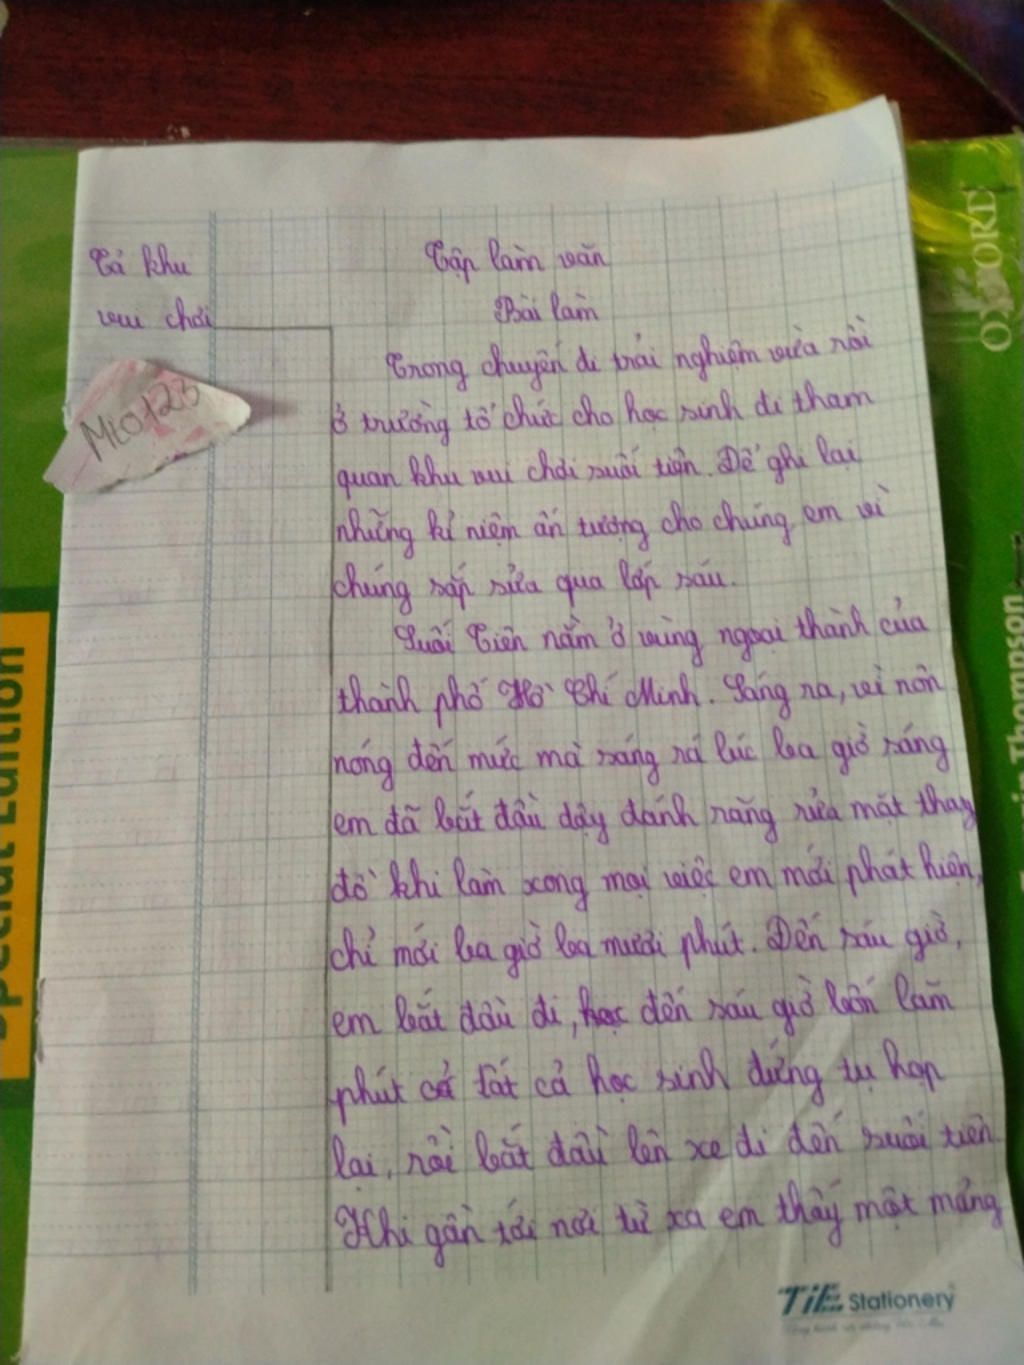 Tả khu
vui chơi
MLO123
Tập làm văn
Bài làm
Trong chuyến đi trải nghiệm vừa rồi
ở trường tổ chức cho học sinh đi tham
quan khu vui chơi suối tiên. Để ghi lại
những kỉ niệm ấn tượng cho chúng em vì
chúng sắp sửa qua lớp sáu.
Suối Tiên nằm ở vùng ngoại thành của
thành phố Hồ Chí Minh. Sáng ra, vì nôn
nóng đến mức mà sáng rá lúc ba giờ sáng
em đã bắt đầu dậy đánh răng rửa mặt thay
đồ khi làm xong mọi việc em mới phát hiện,
chỉ mới ba giờ ba mươi phút. Đến sáu giờ,
em bắt đầu đi, học đến sáu giờ bốn lăm
phút cả tất cả học sinh đứng tụ họp
lại, rồi bắt đầu lên xe đi đến suối tiên.
Khi gần tới nơi từ xa em thấy một mảng
TiE Stationery
OXFORD
in Thompson
Special Edition